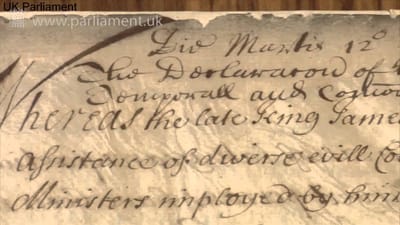 UK Parliament
www.parliament.uk
Die Martis 12º
The Declaracon of
Temporall and Com̄on
Whereas the late King Jame
Assistance of diverse evill Co
Ministers imployed by him